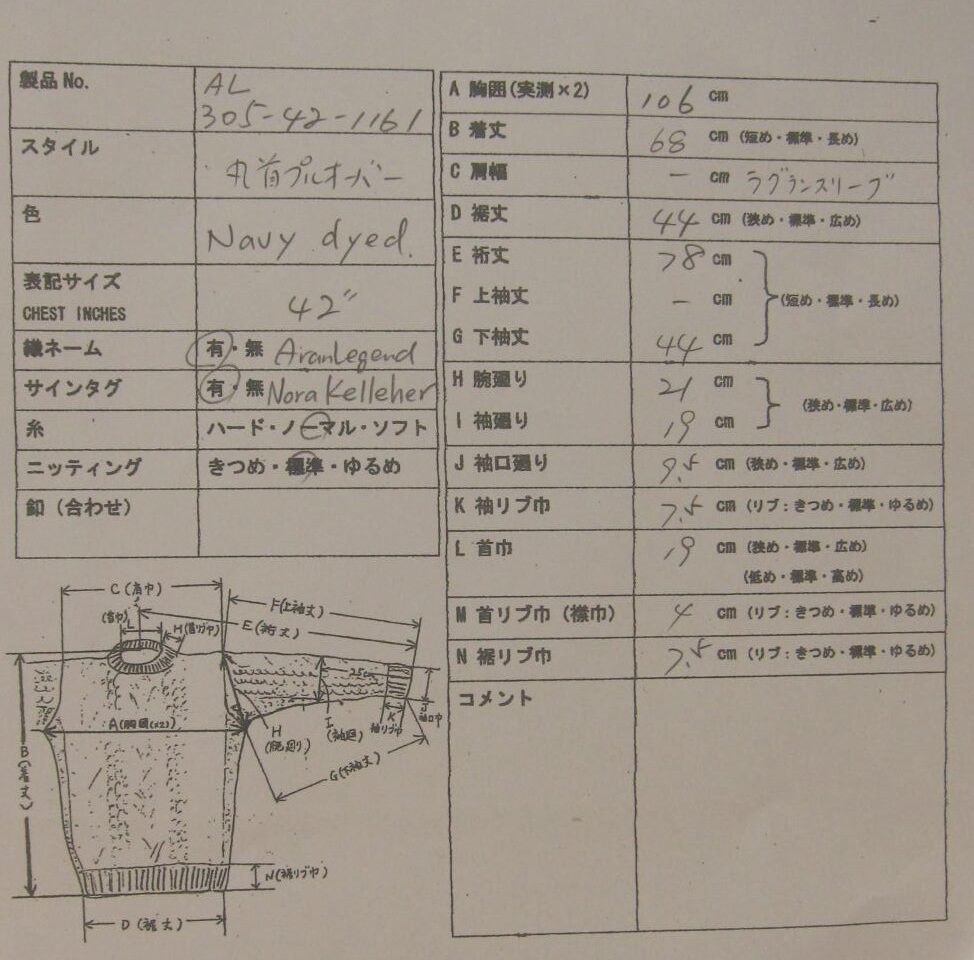 製品No.
AL
305-42-1161
スタイル
丸首プルオーバー
色
Navy dyed.
表記サイズ
CHEST INCHES
42"
織ネーム
有・無 AranLegend
サインタグ
有・無 Nora Kelleher
糸
ハード・ノーマル・ソフト
ニッティング
きつめ・標準・ゆるめ
釦（合わせ）
A 胸囲(実測×2)
106 cm
B 着丈
68 cm (短め・標準・長め)
C 肩幅
- cm ラグランスリーブ
D 裾丈
44 cm (狭め・標準・広め)
E 裄丈
78 cm
F 上袖丈
- cm
(短め・標準・長め)
G 下袖丈
44 cm
H 腕廻り
21 cm
(狭め・標準・広め)
I 袖廻り
19 cm
J 袖口廻り
9.5 cm (狭め・標準・広め)
K 袖リブ巾
7.5 cm (リブ：きつめ・標準・ゆるめ)
L 首巾
19 cm (狭め・標準・広め)
(低め・標準・高め)
M 首リブ巾（襟巾）
4 cm (リブ：きつめ・標準・ゆるめ)
N 裾リブ巾
7.5 cm (リブ：きつめ・標準・ゆるめ)
コメント
C (肩巾)
F(上袖丈)
E(裄丈)
(首巾)
L
M(首リブ巾)
25cm
A(胸囲(×2))
B(着丈)
H
(腕廻り)
I
(袖廻)
K
袖リブ巾
J
袖口巾
G(下袖丈)
N(裾リブ巾)
D (裾丈)